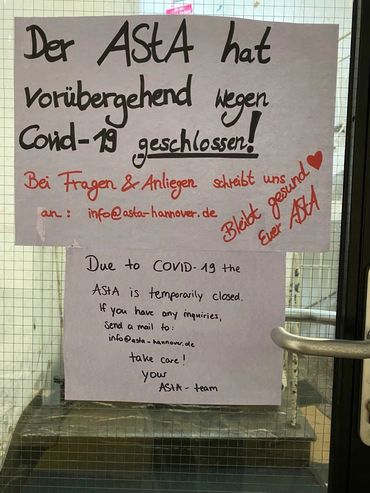 Der AStA hat
vorübergehend wegen
Covid-19 geschlossen!
Bei Fragen & Anliegen schreibt uns
an: info@asta-hannover.de
Bleibt gesund
Euer AStA
Due to COVID-19 the
AStA is temporarily closed.
If you have any inquiries,
send a mail to:
info@asta-hannover.de
take care!
your
AStA-team